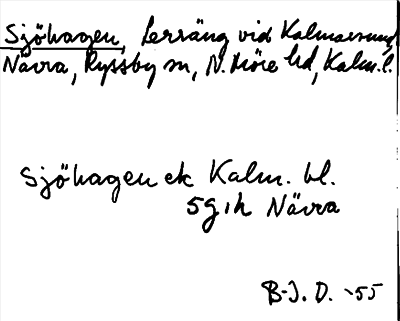 Sjöhagen, Lerräng vid Kalmarsund
Nävra, Ryssby sn, N. Möre hd, Kalm. l.
Sjöhagen ek Kalm. bl.
5g1h Nävra
B-J. D. -55